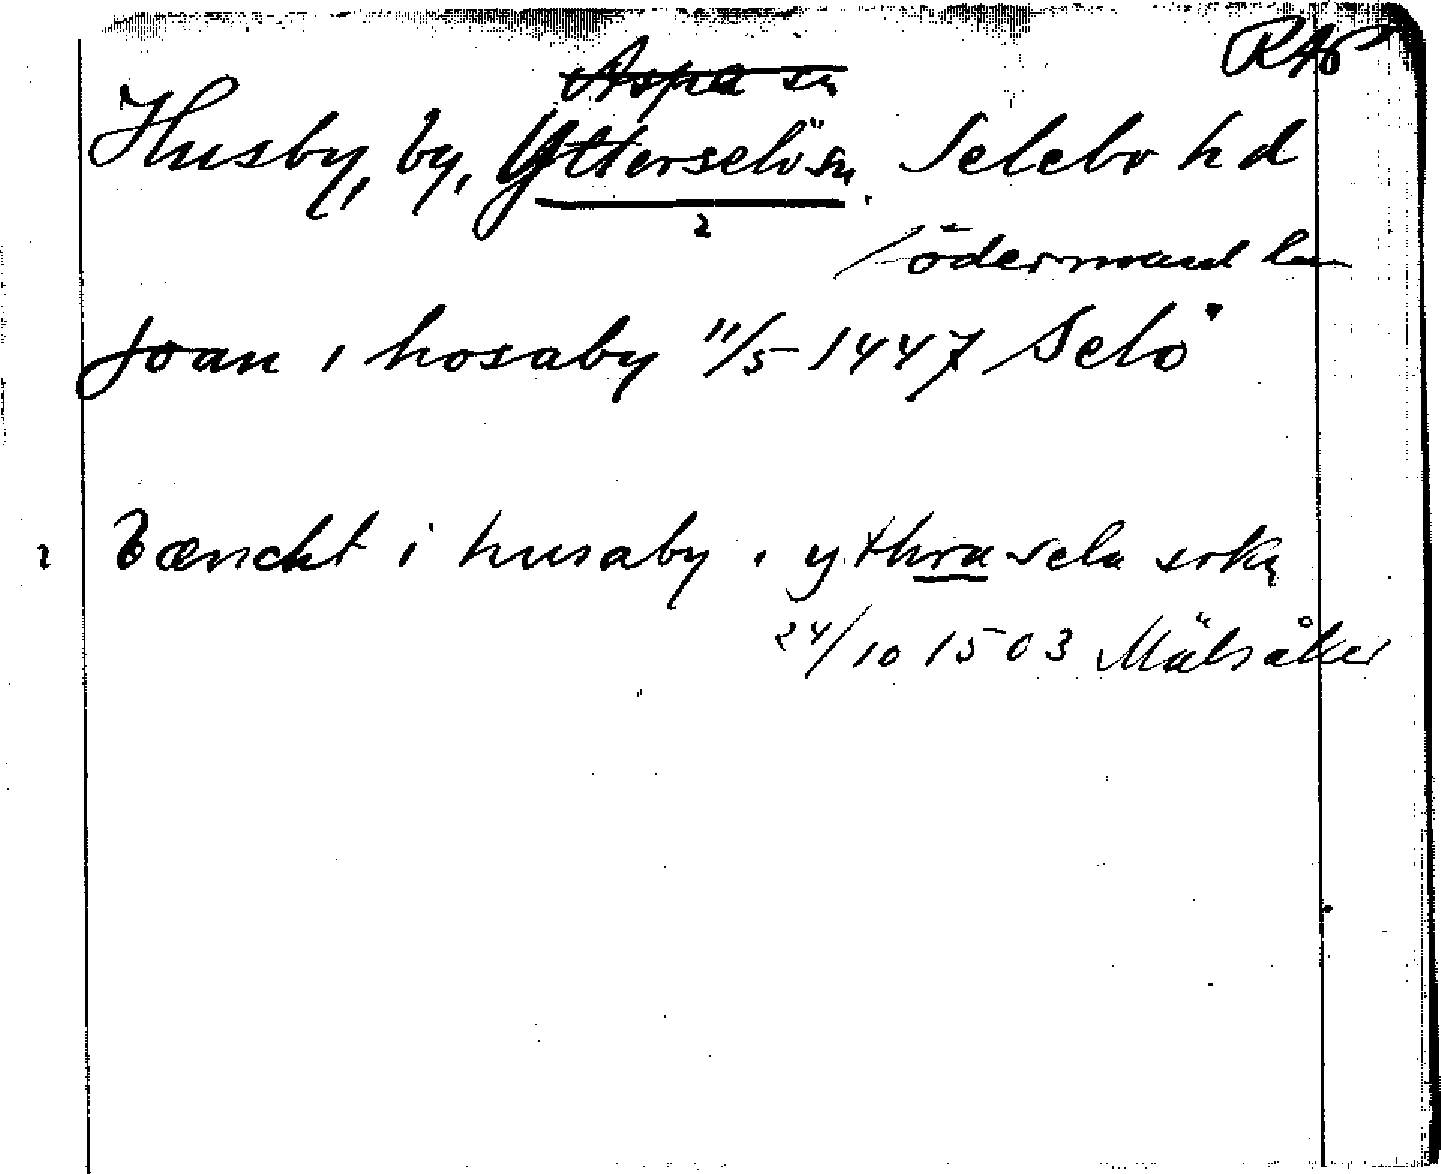 RAP
Aspa sn
Husby, by, Ytterselö sn. Selebo hd
2
Södermanl län
Joan i hosaby 11/5 1447 Selö
2 bænckt i husaby i ythra sela sokn
24/10 1503 Mälsåker